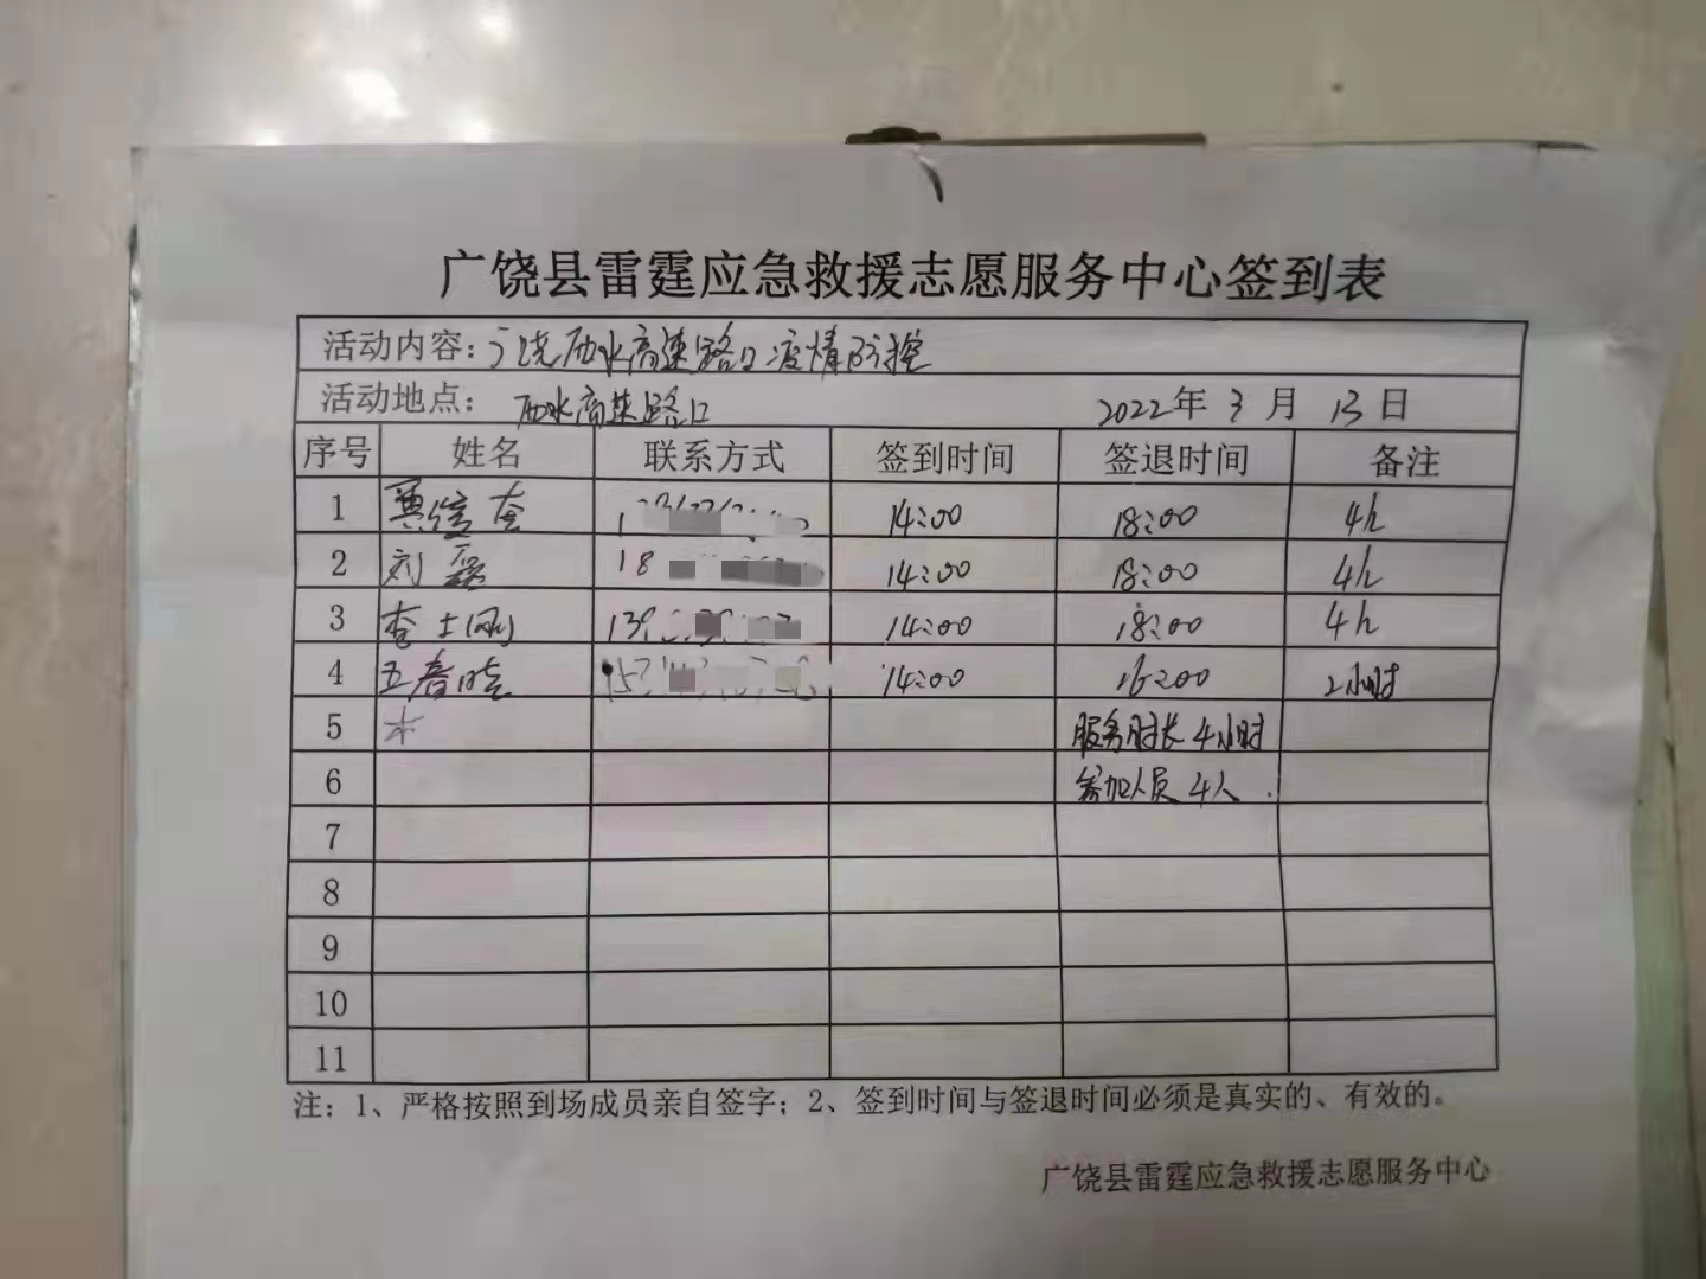 广饶县雷霆应急救援志愿服务中心签到表
活动内容：广饶西水高速路口疫情防控
活动地点： 西水高速路口 2022年 3 月 13 日
序号 姓名 联系方式 签到时间 签退时间 备注
1 14:00 18:00 4h
2 刘磊 18 14:00 18:00 4h
3 李士刚 139 14:00 18:00 4h
4 王春晓 14:00 16:00 2小时
5 服务时长 4小时
6 参加人员 4人.
7
8
9
10
11
注：1、严格按照到场成员亲自签字；2、签到时间与签退时间必须是真实的、有效的。
广饶县雷霆应急救援志愿服务中心